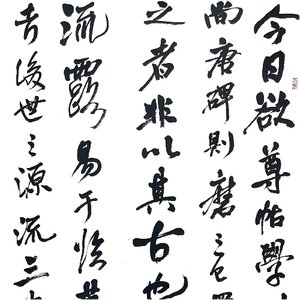 今日欲尊帖學
尚唐碑則磨之已
之者非以其古也
流露易于臨
考後世之源流三